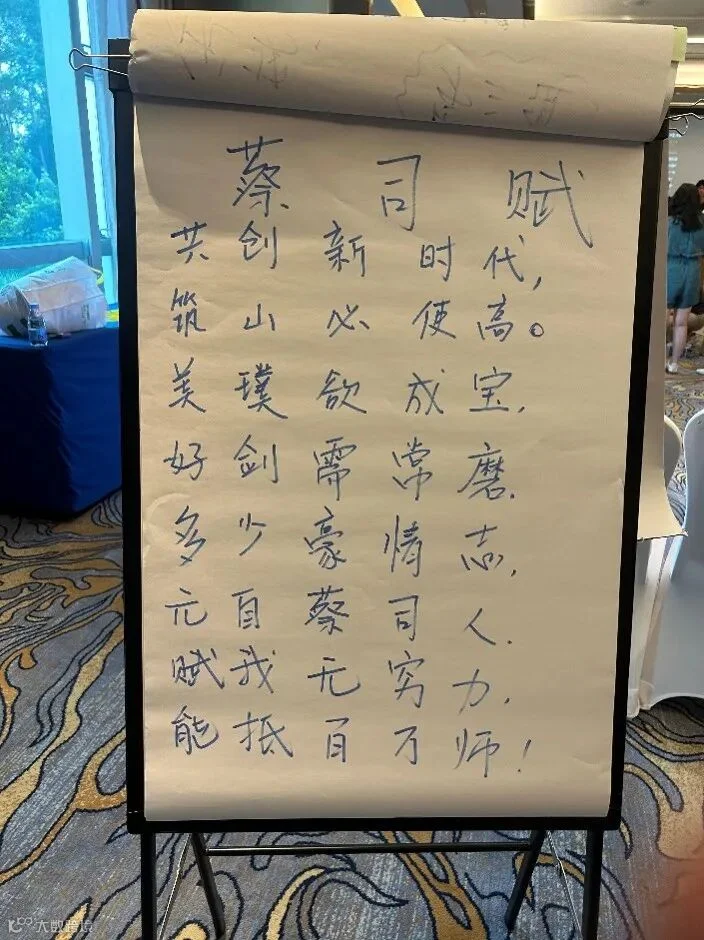 蔡司赋
共创新时代,
筑山必使高。
美璞欲成宝,
好剑需常磨.
多少豪情志,
元自蔡司人.
赋我无穷力,
能抵百万师!
大数跨境